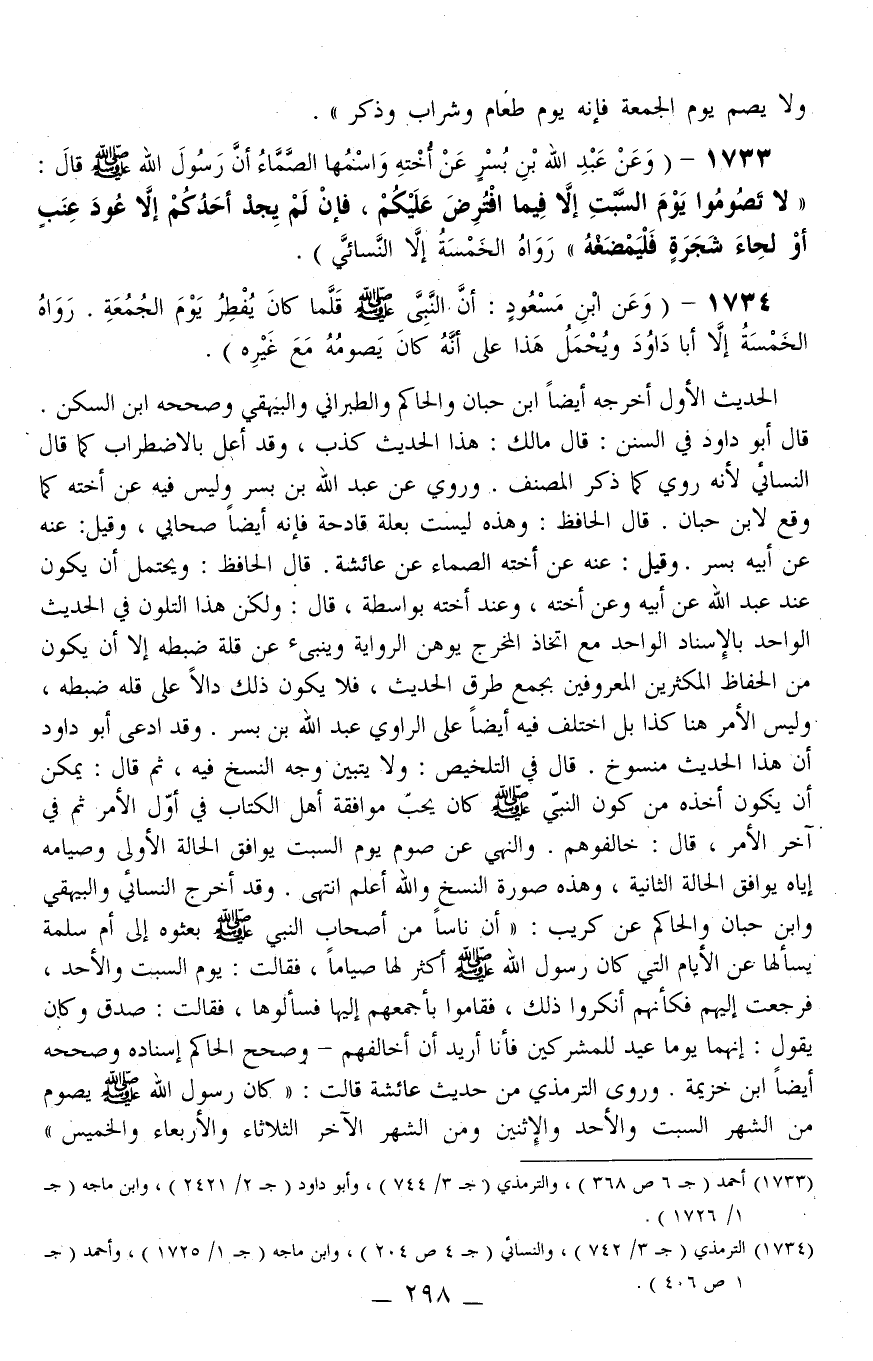 ولا يصم يوم الجمعة فإنه يوم طعام وشراب وذكر » .
١٧٣٣ – ( وَعَنْ عَبْدِ الله بْنِ بُسْرٍ عَنْ أُخْتهِ وَاسْمُها الصَّمَّاءُ أنَّ رَسُولَ الله ﷺ قالَ :
« لا تَصُومُوا يَوْمَ السَّبْتِ إلَّا فِيما افْتُرِضَ عَلَيْكُمْ ، فإنْ لَمْ يجِدْ أحَدُكُمْ إلَّا عُودَ عِنَبٍ
أوْ لحِاءَ شَجَرَةٍ فَلْيَمْضَغْهُ » رَوَاهُ الخَمْسَةُ إلَّا النَّسائيَّ ) .
١٧٣٤ – ( وَعَن ابْنِ مَسْعُودٍ : أنَّ النَّبِىَّ ﷺ قَلَّما كانَ يُفْطِرُ يَوْمَ الجُمُعَةِ . رَوَاهُ
الخَمْسَةُ إلَّا أبا دَاوُدَ ويُحْمَلُ هَذا على أنَّهُ كانَ يَصومُهُ مَعَ غَيْرِه ) .
الحديث الأول أخرجه أيضاً ابن حبان والحاكم والطبراني والبيهقي وصححه ابن السكن .
قال أبو داود في السنن : قال مالك : هذا الحديث كذب ، وقد أعل بالاضطراب كما قال
النسائي لأنه روي كما ذكر المصنف . وروي عن عبد الله بن بسر وليس فيه عن أخته كما
وقع لابن حبان . قال الحافظ : وهذه ليست بعلة قادحة فإنه أيضاً صحابي ، وقيل: عنه
عن أبيه بسر . وقيل : عنه عن أخته الصماء عن عائشة . قال الحافظ : ويحتمل أن يكون
عند عبد الله عن أبيه وعن أخته ، وعند أخته بواسطة ، قال : ولكن هذا التلون في الحديث
الواحد بالإسناد الواحد مع اتخاذ المخرج يوهن الرواية وينبىء عن قلة ضبطه إلا أن يكون
من الحفاظ المكثرين المعروفين بجمع طرق الحديث ، فلا يكون ذلك دالاً على قله ضبطه ،
وليس الأمر هنا كذا بل اختلف فيه أيضاً على الراوي عبد الله بن بسر . وقد ادعى أبو داود
أن هذا الحديث منسوخ . قال في التلخيص : ولا يتبين وجه النسخ فيه ، ثم قال : يمكن
أن يكون أخذه من كون النبيّ ﷺ كان يحبّ موافقة أهل الكتاب في أوّل الأمر ثم في
آخر الأمر ، قال : خالفوهم . والنهي عن صوم يوم السبت يوافق الحالة الأولى وصيامه
إياه يوافق الحالة الثانية ، وهذه صورة النسخ والله أعلم انتهى . وقد أخرج النسائي والبيهقي
وابن حبان والحاكم عن كريب : « أن ناساً من أصحاب النبي ﷺ بعثوه إلى أم سلمة
يسألها عن الأيام التي كان رسول الله ﷺ أكثر لها صياماً ، فقالت : يوم السبت والأحد ،
فرجعت إليهم فكأنهم أنكروا ذلك ، فقاموا بأجمعهم إليها فسألوها ، فقالت : صدق وكان
يقول : إنهما يوما عيد للمشركين فأنا أريد أن أخالفهم – وصحح الحاكم إسناده وصححه
أيضاً ابن خزيمة . وروى الترمذي من حديث عائشة قالت : « كان رسول الله ﷺ يصوم
من الشهر السبت والأحد والإثنين ومن الشهر الآخر الثلاثاء والأربعاء والخميس »
(١٧٣٣) أحمد ( جـ ٦ ص ٣٦٨ ) ، والترمذي ( جـ ٣/ ٧٤٤ ) ، وأبو داود ( جـ ٢/ ٢٤٢١ ) ، وابن ماجه ( جـ
١/ ١٧٢٦ ) .
(١٧٣٤) الترمذي ( جـ ٣/ ٧٤٢ ) ، والنسائي ( جـ ٤ ص ٢٠٤ ) ، وابن ماجه ( جـ ١/ ١٧٢٥ ) ، وأحمد ( جـ
١ ص ٤٠٦ ) .
– ٢٩٨ –